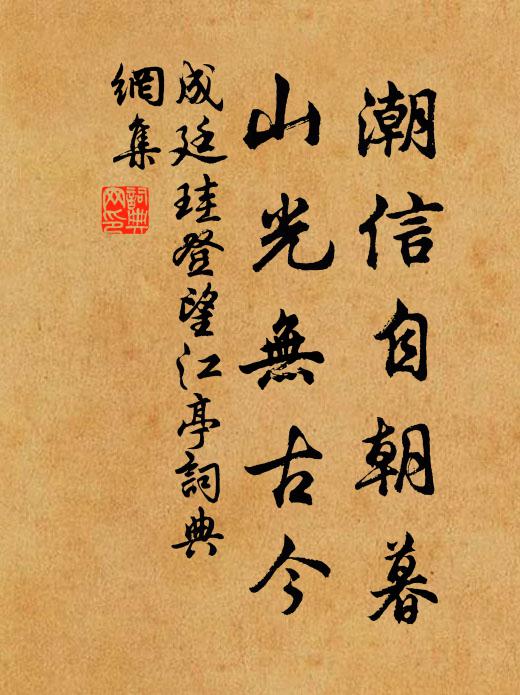 潮信自朝暮
山光無古今
成廷珪登望江亭詞典
網集
詞典
网印